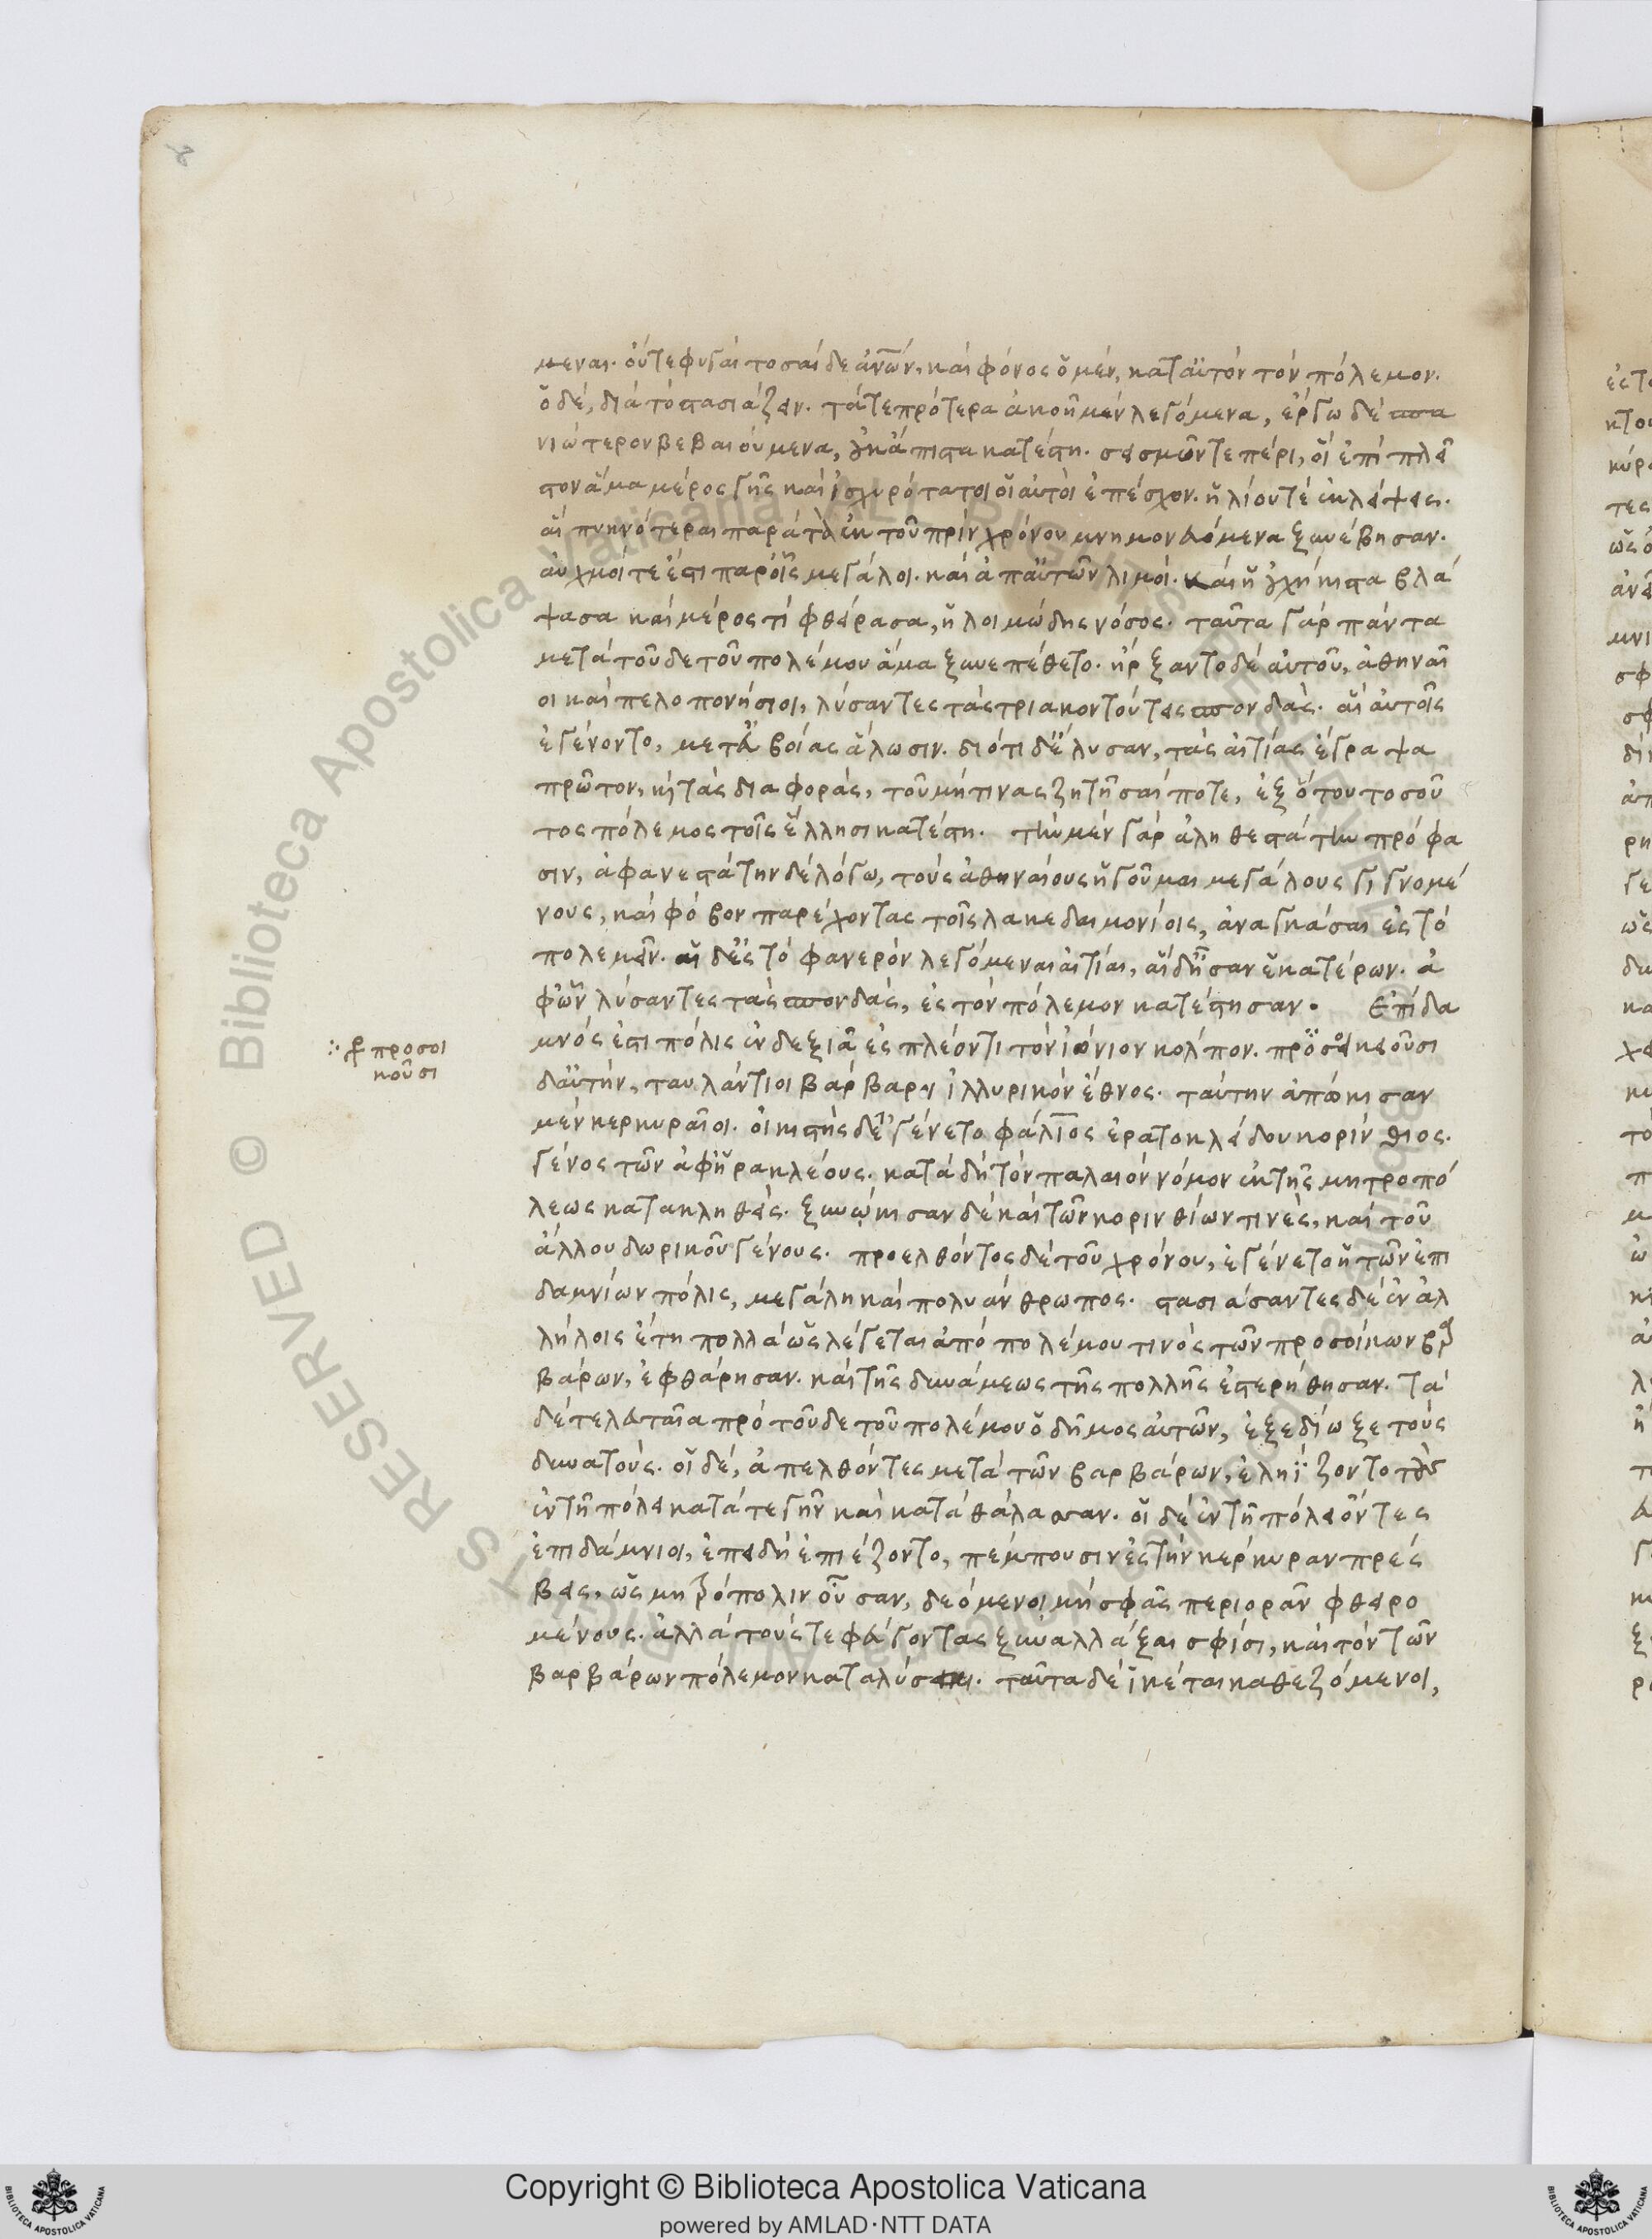 μεναι. οὔτε φυγαὶ τοσαίδε ἀν̅ων, καὶ φόνος ὁ μὲν, κατ' αὐτὸν τὸν πόλεμον.
ὁ δὲ, διὰ τὸ στασιάζειν. τά τε πρότερα ἀκοῇ μὲν λεγόμενα, ἔργω δὲ σπα
νιώτερον βεβαιούμενα, οὐκ ἄπιστα κατέστη. σεισμῶν τε πέρι, οἳ ἐπὶ πλεῖ
στον ἅμα μέρος γῆς καὶ ἰσχυρότατοι οἱ αὐτοὶ ἐπέσχον. ἡλίου τέ ἐκλείψεις.
αἳ πυκνότεραι παρὰ τὰ ἐκ τοῦ πρὶν χρόνου μνημονευόμενα ξυνέβησαν.
αὐχμοί τε ἔστι παρ' οἷς μεγάλοι. καὶ ἀπ' αὐτῶν λιμοί. καὶ ἡ οὐχ ἥκιστα βλά
ψασα καὶ μέρος τὶ φθείρασα, ἡ λοιμώδης νόσος. ταῦτα γὰρ πάντα
μετὰ τοῦδε τοῦ πολέμου ἅμα ξυνεπέθετο. ἤρξαντο δὲ αὐτοῦ, ἀθηναῖ
οι καὶ πελοπονήσιοι, λύσαντες τὰς τριακοντούτεις σπονδὰς. αἳ αὐτοῖς
ἐγένοντο, μετὰ εὐβοίας ἅλωσιν. διότι δ' ἔλυσαν, τὰς αἰτίας ἔγραψα
πρῶτον, κ̀ τὰς διαφορὰς, τοῦ μή τινας ζητῆσαί ποτε, ἐξ ὅτου τοσοῦ
τος πόλεμος τοῖς ἕλλησι κατέστη. τὴν μὲν γὰρ ἀληθεστάτην πρόφα
σιν, ἀφανεστάτην δὲ λόγω, τοὺς ἀθηναίους ἡγοῦμαι μεγάλους γιγνομέ
νους, καὶ φόβον παρέχοντας τοῖς λακεδαιμονίοις, ἀναγκάσαι ἐς τὸ
πολεμεῖν. αἱ δ' ἐς τὸ φανερὸν λεγόμεναι αἰτίαι, αἵδ' ἦσαν ἑκατέρων. ἀ
φ' ὧν λύσαντες τὰς σπονδὰς, ἐς τὸν πόλεμον κατέστησαν. Ἐπίδα
μνός ἐστι πόλις ἐν δεξιᾶ ἐς πλέοντι τὸν ἰόνιον κόλπον. προσοικοῦσι
δ' αὐτὴν, ταυλάντιοι βάρβαροι ἰλλυρικὸν ἔθνος. ταύτην ἀπώκισαν
μὲν κερκυραῖοι. οἰκιστὴς δ' ἐγένετο φάλιος ἐρατοκλείδου κορίνθιος.
γένος τῶν ἀφ' ἡρακλέους. κατὰ δὴ τὸν παλαιὸν νόμον ἐκ τῆς μητροπό
λεως κατακληθείς. ξυνώκισαν δὲ καὶ τῶν κορινθίων τινὲς, καὶ τοῦ
ἄλλου δωρικοῦ γένους. προελθόντος δὲ τοῦ χρόνου, ἐγένετο ἡ τῶν ἐπι
δαμνίων πόλις, μεγάλη καὶ πολυάνθρωπος. στασιάσαντες δὲ ἐν ἀλ
λήλοις ἔτη πολλὰ ὡς λέγεται ἀπὸ πολέμου τινὸς τῶν προσοίκων βαρ
βάρων, ἐφθάρησαν. καὶ τῆς δυνάμεως τῆς πολλῆς ἐστερήθησαν. τὰ
δὲ τελευταῖα πρὸ τοῦδε τοῦ πολέμου ὁ δῆμος αὐτῶν, ἐξεδίωξε τοὺς
δυνατούς. οἱ δὲ, ἀπελθόντες μετὰ τῶν βαρβάρων, ἐληΐζοντο τοὺς
ἐν τῆ πόλει κατά τε γῆν καὶ κατὰ θάλασσαν. οἱ δὲ ἐν τῆ πόλει ὄντες
ἐπιδάμνιοι, ἐπειδὴ ἐπιέζοντο, πέμπουσιν ἐς τὴν κέρκυραν πρέσ
βεις, ὡς μητρόπολιν οὖσαν, δεόμενοι μὴ σφᾶς περιορᾶν φθειρο
μένους. ἀλλὰ τούς τε φεύγοντας ξυναλλάξαι σφίσι, καὶ τὸν τῶν
βαρβάρων πόλεμον καταλύσαι. ταῦτα δὲ ἱκέται καθεζόμενοι,
προσοι
κοῦσι
Copyright © Biblioteca Apostolica Vaticana
powered by AMLAD·NTT DATA